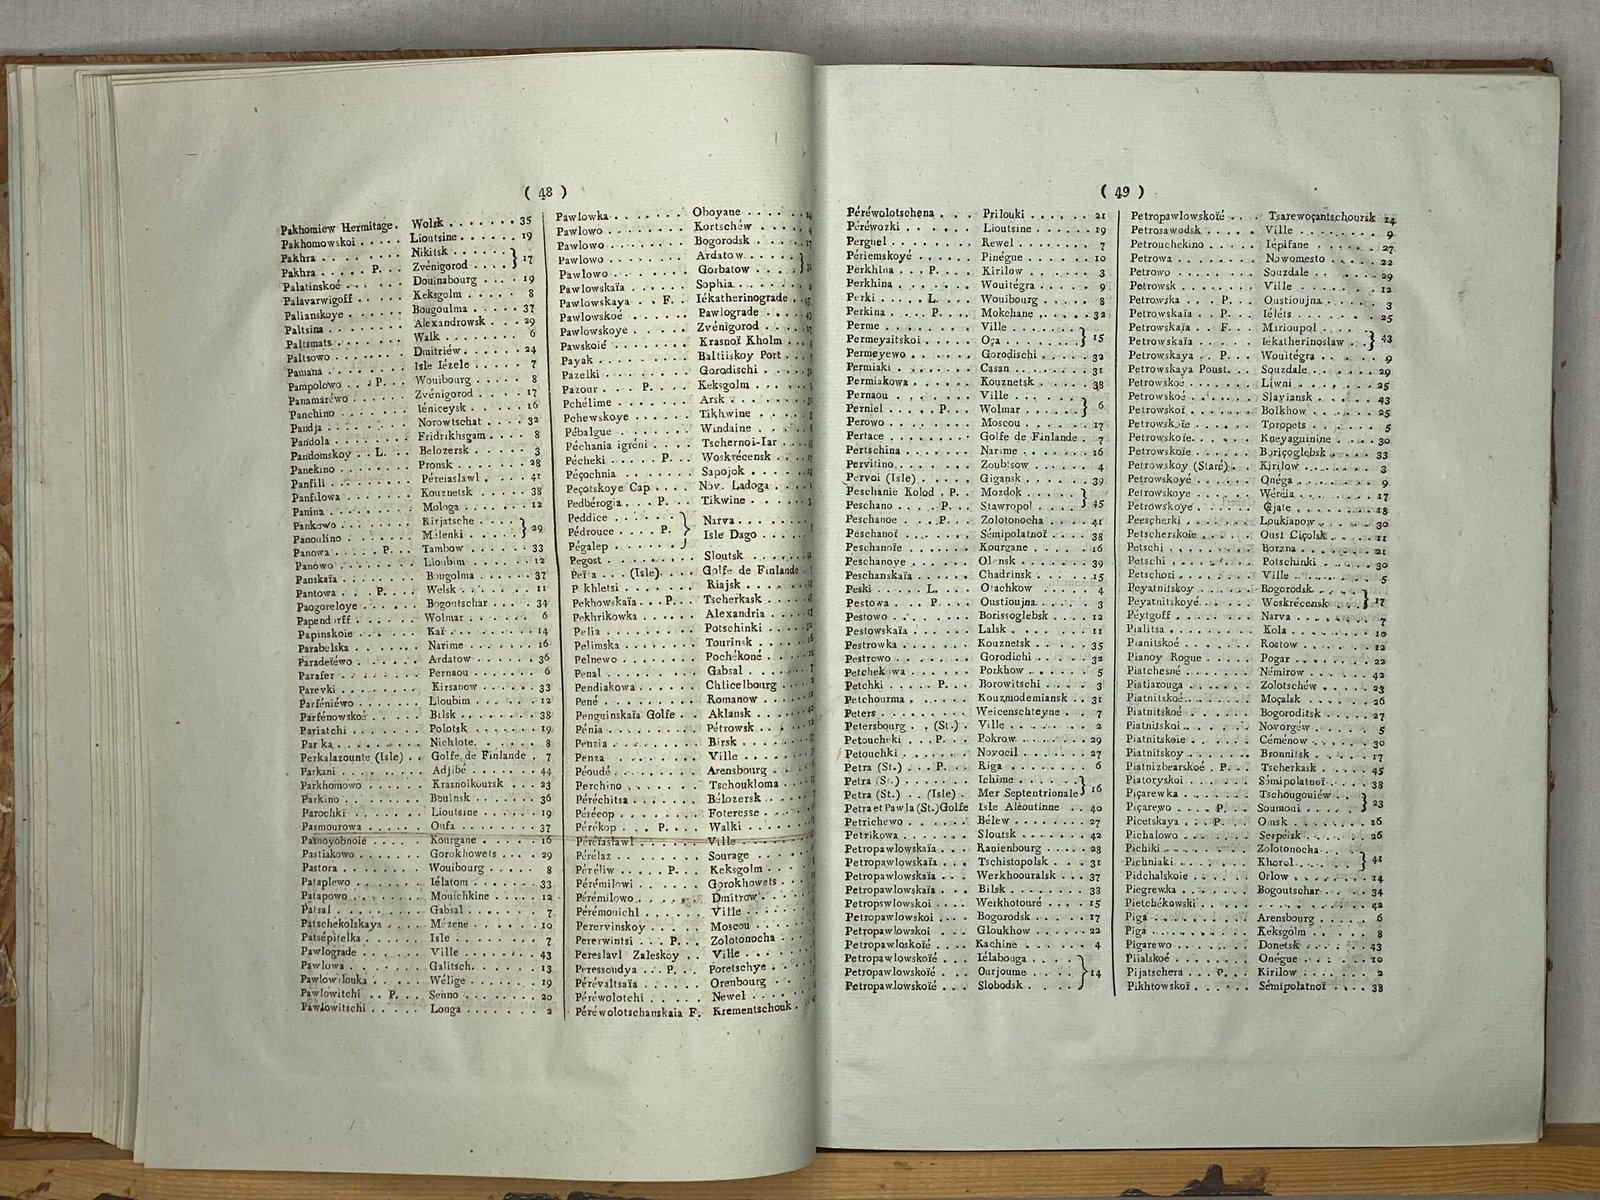 ( 48 )
Pakhomiew Hermitage. Wolsk . . . . . . . 35
Pakhomowskoi . . . . . Lioutsine . . . . . . 19
Pakhra . . . . . . . . . Nikitsk . . . . . . . } 17
Pakhra . . . . . P. . . Zvénigorod . . . . }
Palatinskoé . . . . . . Douinabourg . . . . 19
Palavarwigoff . . . . . Keksgolm . . . . . 8
Palianskoye . . . . . . Bougoulma . . . . . 37
Paltsina . . . . . . . . Alexandrowsk . . . 29
Paltsmats . . . . . . . Walk . . . . . . . . 6
Paltsowo . . . . . . . Dmitriéw . . . . . . 24
Pamana . . . . . . . . Isle Iézele . . . . . 7
Pampolowo . . . P. . . Wouibourg . . . . . 8
Panamaréwo . . . . . . Zvénigorod . . . . . 17
Panchino . . . . . . . Iéniceysk . . . . . . 16
Pandja . . . . . . . . Norowtschat . . . . 32
Pandola . . . . . . . . Fridrikhsgam . . . . 8
Pandomskoy . . L. . . Belozersk . . . . . . 3
Panekino . . . . . . . Pronsk . . . . . . . 28
Panfili . . . . . . . . Péreiaslawl . . . . . 41
Panfilowa . . . . . . . Kouznetsk . . . . . 38
Panina . . . . . . . . Mologa . . . . . . . 12
Pankowo . . . . . . . Kirjatsche . . . . . } 29
Panoulino . . . . . . . Mélenki . . . . . . }
Panowa . . . . . P. . . Tambow . . . . . . 33
Panowo . . . . . . . . Lioubim . . . . . . 12
Panskaïa . . . . . . . Bougolma . . . . . 37
Pantowa . . . . P. . . Welsk . . . . . . . 11
Paogoreloye . . . . . . Bogoutschar . . . . 34
Papendorff . . . . . . Wolmar . . . . . . 6
Papinskoie . . . . . . Kaï . . . . . . . . . 14
Parabelska . . . . . . Narime . . . . . . . 16
Paradeïéwo . . . . . . Ardatow . . . . . . 36
Parafer . . . . . . . . Pernaou . . . . . . 6
Parevki . . . . . . . . Kirsanow . . . . . 33
Parféniéwo . . . . . . Lioubim . . . . . . 12
Parfénowskoé . . . . . Bilsk . . . . . . . . 38
Pariatchi . . . . . . . Polotsk . . . . . . . 19
Parka . . . . . . . . . Nichlote . . . . . . 8
Perkalazounte (Isle) . . Golfe de Finlande . 7
Parkani . . . . . . . . Adjibé . . . . . . . 44
Parkhomowo . . . . . . Krasnoikoursk . . . 23
Parkino . . . . . . . . Bouinsk . . . . . . 36
Parochki . . . . . . . Lioutsine . . . . . . 19
Pasmourowa . . . . . . Oufa . . . . . . . . 37
Pasnoyobnoie . . . . . Kourgane . . . . . . 16
Pastiakowo . . . . . . Gorokhowets . . . . 29
Pastora . . . . . . . . Wouibourg . . . . . 8
Pataplewo . . . . . . . Iélatom . . . . . . . 33
Patapowo . . . . . . . Mouichkine . . . . . 12
Patsal . . . . . . . . Gabsal . . . . . . . 7
Patschekolskaya . . . . Mézene . . . . . . . 10
Patsépitelka . . . . . . Isle . . . . . . . . 7
Pawlograde . . . . . . Ville . . . . . . . . 43
Pawlowa . . . . . . . Galitsch . . . . . . 13
Pawlowilouka . . . . . Wélige . . . . . . . 19
Pawlowitchi . . P. . . Senno . . . . . . . 20
Pawlowitschi . . . . . Louga . . . . . . . 2
Pawlowka . . . . . . . Oboyane . . . . . .
Pawlowo . . . . . . . Kortschéw . . . . .
Pawlowo . . . . . . . Bogorodsk . . . . .
Pawlowo . . . . . . . Ardatow . . . . . }
Pawlowo . . . . . . . Gorbatow . . . . }
Pawlowskaïa . . . . . Sophia . . . . . . .
Pawlowskaya . . F. . . Iékatherinograde . .
Pawlowskoé . . . . . . Pawlograde . . . . .
Pawlowskoye . . . . . Zvénigorod . . . . .
Pawskoié . . . . . . . Krasnoï Kholm . . .
Payak . . . . . . . . Baltiiskoy Port . . .
Pazelki . . . . . . . . Gorodischi . . . . .
Pazour . . . . . P. . . Keksgolm . . . . . .
Pchélime . . . . . . . Arsk . . . . . . . .
Pchewskoye . . . . . . Tikhwine . . . . . .
Pébalgue . . . . . . . Windaine . . . . . .
Péchania igréni . . . . Tschernoi-Iar . . . .
Pécheki . . . . . P. . . Woskrécensk . . . .
Péçochnia . . . . . . . Sapojok . . . . . . .
Peçotskoye Cap . . . . Nov. Ladoga . . . .
Pedbérogia . . . P. . . Tikwine . . . . . .
Peddice . . . . . . . }
Pédrouce . . . . P. . } Narva . . . . . . .
Pégalep . . . . . . . } Isle Dago . . . . .
Pegost . . . . . . . . Sloutsk . . . . . . .
Peïta . . . (Isle) . . . Golfe de Finlande .
P khletsi . . . . . . . Riajsk . . . . . . .
Pekhowskaïa . . . P. . . Tscherkask . . . . .
Pekhrikowka . . . . . . Alexandria . . . . .
Pelia . . . . . . . . . Potschinki . . . . .
Pelimska . . . . . . . Tourinsk . . . . . .
Pelnewo . . . . . . . Pochékoné . . . . .
Penal . . . . . . . . Gabsal . . . . . . .
Pendiakowa . . . . . . Chlicelbourg . . . .
Pené . . . . . . . . . Romanow . . . . . .
Penguinskaïa Golfe . . Aklansk . . . . . .
Pénia . . . . . . . . Pétrowsk . . . . . .
Penzia . . . . . . . . Birsk . . . . . . . .
Penza . . . . . . . . Ville . . . . . . . .
Péoudé . . . . . . . . Arensbourg . . . . .
Perchino . . . . . . . Tschoukloma . . . .
Péréchitsa . . . . . . . Bélozersk . . . . . .
Pérécop . . . . . . . . Foteresse . . . . . .
Pérékop . . . . P. . . Walki . . . . . . .
Péréiaslawl . . . . . . Ville . . . . . . . .
Pérélaz . . . . . . . . Sourage . . . . . . .
Péréliw . . . . . P. . . Keksgolm . . . . . .
Pérémilowi . . . . . . Gorokhowets . . . .
Pérémilowo . . . . . . Dmitrow . . . . . .
Pérémouichl . . . . . . Ville . . . . . . . .
Perervinskoy . . . . . . Moscou . . . . . . .
Pererwintsi . . . P. . . Zolotonocha . . . . .
Pereslavl Zaleskoy . . Ville . . . . . . . .
Peressoudya . . . P. . . Poretschye . . . . .
Pérévaltsaïa . . . . . . Orenbourg . . . . . .
Péréwolotchi . . . . . Newel . . . . . . .
Péréwolotschanskaia F. Krementschouk .
( 49 )
Péréwolotschena . . . Prilouki . . . . . . 21
Péréwozki . . . . . . Lioutsine . . . . . . 19
Perguel . . . . . . . . Rewel . . . . . . . . 7
Périemskoyé . . . . . Pinégue . . . . . . . 10
Perkhina . . . P. . . . Kirilow . . . . . . . 3
Perkhina . . . . . . . Wouitégra . . . . . . 9
Perki . . . . . L. . . . Wouibourg . . . . . . 8
Perkina . . . . P. . . . Mokchane . . . . . . 32
Perme . . . . . . . . Ville . . . . . . . } 15
Permeyaitskoi . . . . . Oça . . . . . . . . }
Permeyewo . . . . . . Gorodischi . . . . . . 32
Permiaki . . . . . . . Casan . . . . . . . . 31
Permiakowa . . . . . . Kouznetsk . . . . . . 38
Pernaou . . . . . . . Ville . . . . . . . } 6
Perniel . . . . . P. . . Wolmar . . . . . . }
Perowo . . . . . . . . Moscou . . . . . . . 17
Pertace . . . . . . . . Golfe de Finlande . 7
Pertschina . . . . . . Narime . . . . . . . 16
Pervitino . . . . . . . Zoubtsow . . . . . . 4
Pervoi (Isle) . . . . . Gigansk . . . . . . . 39
Peschanie Kolod . P. . . Mozdok . . . . . . } 45
Peschano . . . . P. . . Stawropol . . . . . }
Peschanoe . . . P. . . Zolotonocha . . . . . 41
Peschanoï . . . . . . Sémipolatnoï . . . . . 38
Peschanoïe . . . . . . Kourgane . . . . . . 16
Peschanoye . . . . . . Olensk . . . . . . . 39
Peschanskaïa . . . . . Chadrinsk . . . . . . 15
Peski . . . . . L. . . . Otachkow . . . . . . 4
Pestowa . . . . P. . . . Oustioujna . . . . . . 3
Pestowo . . . . . . . . Borissoglebsk . . . . 12
Pestowskaïa . . . . . . Lalsk . . . . . . . . 11
Pestrowka . . . . . . . Kouznetsk . . . . . . 35
Pestrowo . . . . . . . Gorodichi . . . . . . 32
Petchekowa . . . . . . Porkhow . . . . . . . 5
Petchki . . . . . P. . . Borowitschi . . . . . 3
Petchourma . . . . . . Kouzmodemiansk . . . 31
Peters . . . . . . . . Weicenschteyne . . . 7
Petersbourg . . (St.) . Ville . . . . . . . . 2
Petoucheki . . . P. . . Pokrow . . . . . . . 29
Petouchki . . . . . . . Novocil . . . . . . . 27
Petra (St.) . . . P. . . Riga . . . . . . . . 6
Petra (St.) . . . . . . Ichime . . . . . . } 16
Petra (St.) . . (Isle) . Mer Septentrionale }
Petra et Pawla (St.) Golfe Isle Aléoutinne . . 40
Petrichewo . . . . . . Bélew . . . . . . . . 27
Petrikowa . . . . . . . Sloutsk . . . . . . . 42
Petropawlowskaïa . . . Ranienbourg . . . . . 28
Petropawlowskaïa . . . Tschistopolsk . . . . 31
Petropawlowskaïa . . . Werkhoouralsk . . . . 37
Petropawlowskaïa . . . Bilsk . . . . . . . . 38
Petropswlowskoi . . . Werkhotouré . . . . . 15
Petropawlowskoi . . . Bogorodsk . . . . . . 17
Petropawlowskoi . . . Gloukhow . . . . . . 22
Petropawloskoïé . . . Kachine . . . . . . . 4
Petropawlowskoïé . . . Iélabouga . . . . . }
Petropawlowskoïé . . . Ourjoume . . . . . } 14
Petropawlowskoïé . . . Slobodsk . . . . . . }
Petropawlowskoïé . . . Tsarewoçantschoursk 14
Petrosawodsk . . . . . Ville . . . . . . . . 9
Petrouchekino . . . . . Iépifane . . . . . . . 27
Petrowa . . . . . . . . Nowomesto . . . . . 22
Petrowo . . . . . . . . Souzdale . . . . . . . 29
Petrowsk . . . . . . . Ville . . . . . . . . 12
Petrowska . . . P. . . Oustioujna . . . . . . 3
Petrowskaïa . . P. . . Iéléts . . . . . . . . 25
Petrowskaïa . . F. . . Marioupol . . . . . } 43
Petrowskaïa . . . . . . Iékatherinoslaw . . }
Petrowskaya . . P. . . Wouitégra . . . . . . 9
Petrowskaya Poust. . . Souzdale . . . . . . . 29
Petrowskoé . . . . . . Liwni . . . . . . . . 25
Petrowskoé . . . . . . Slaviansk . . . . . . 43
Petrowskoï . . . . . . Bolkhow . . . . . . . 25
Petrowskoïe . . . . . . Toropets . . . . . . . 5
Petrowskoïe . . . . . . Kneyaguinine . . . . 30
Petrowskoïe . . . . . . Boriçoglebsk . . . . . 33
Petrowskoy (Staré) . . Kirilow . . . . . . . 3
Petrowskoyé . . . . . . Onéga . . . . . . . . 9
Petrowskoye . . . . . . Wéréia . . . . . . . . 17
Petrowskoye . . . . . . Gjate . . . . . . . . 18
Peescherki . . . . . . Loukianow . . . . . . 30
Petscherskoie . . . . . Oust Ciçolsk . . . . . 11
Petschi . . . . . . . . Borzna . . . . . . . . 21
Petschi . . . . . . . . Potschinki . . . . . . 30
Petschori . . . . . . . Ville . . . . . . . . 5
Peyatnitskoy . . . . . . Bogorodsk . . . . . } 17
Peyatnitskoyé . . . . . Woskrécensk . . . . }
Péytgoff . . . . . . . Narva . . . . . . . . 7
Pialitsa . . . . . . . . Kola . . . . . . . . . 10
Pianitskoé . . . . . . . Rostow . . . . . . . 12
Pianoy Rogue . . . . . Pogar . . . . . . . . 22
Piatchesné . . . . . . . Némirow . . . . . . . 42
Piatiarouga . . . . . . Zolotschéw . . . . . . 23
Piatnitskoé . . . . . . . Moçalsk . . . . . . . 26
Piatnitskoé . . . . . . . Bogoroditsk . . . . . 27
Piatnitskoi . . . . . . . Novorgéw . . . . . . 5
Piatnitskoie . . . . . . Céménow . . . . . . 30
Piatnitskoy . . . . . . . Bronnitsk . . . . . . 17
Piatnizbearskoé . P. . . Tscherkask . . . . . . 45
Piatoryskoi . . . . . . . Sémipolatnoï . . . . . 38
Piçarewka . . . . . . . Tschougouiéw . . . } 23
Piçarewo . . . . P. . . Soumoni . . . . . . }
Picetskaya . . . P. . . Omsk . . . . . . . . 16
Pichalowo . . . . . . . Serpeisk . . . . . . . 26
Pichiki . . . . . . . . Zolotonocha . . . . }
Pichniaki . . . . . . . Khorol . . . . . . . } 41
Pidchalskoie . . . . . . Orlow . . . . . . . . 14
Piegrewka . . . . . . . Bogoutschar . . . . . 34
Pietchékowski . . . . . . . . . . . . . . . . 42
Piga . . . . . . . . . Arensbourg . . . . . . 6
Piga . . . . . . . . . Keksgolm . . . . . . . 8
Pigarewo . . . . . . . Donetsk . . . . . . . 43
Piialskoé . . . . . . . Onégue . . . . . . . . 10
Pijatschera . . . P. . . Kirilow . . . . . . . 2
Pikhtowskoï . . . . . . Sémipolatnoï . . . . . 38